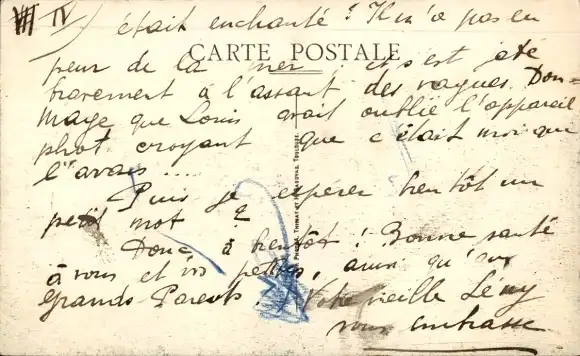 IV) était enchanté ! Il n'a pas eu
CARTE POSTALE
peur de la mer : il s'est jeté
bravement à l'assaut des vagues. Dom-
mage que Louis avait oublié l'appareil
phot. croyant que c'était moi qui
l'avais ....
Puis je espérer bientôt un
petit mot ?
Donc à bientôt ! Bonne santé
à vous et vos petites, ainsi qu'aux
Grands-Parents ! Votre vieille
vous embrasse